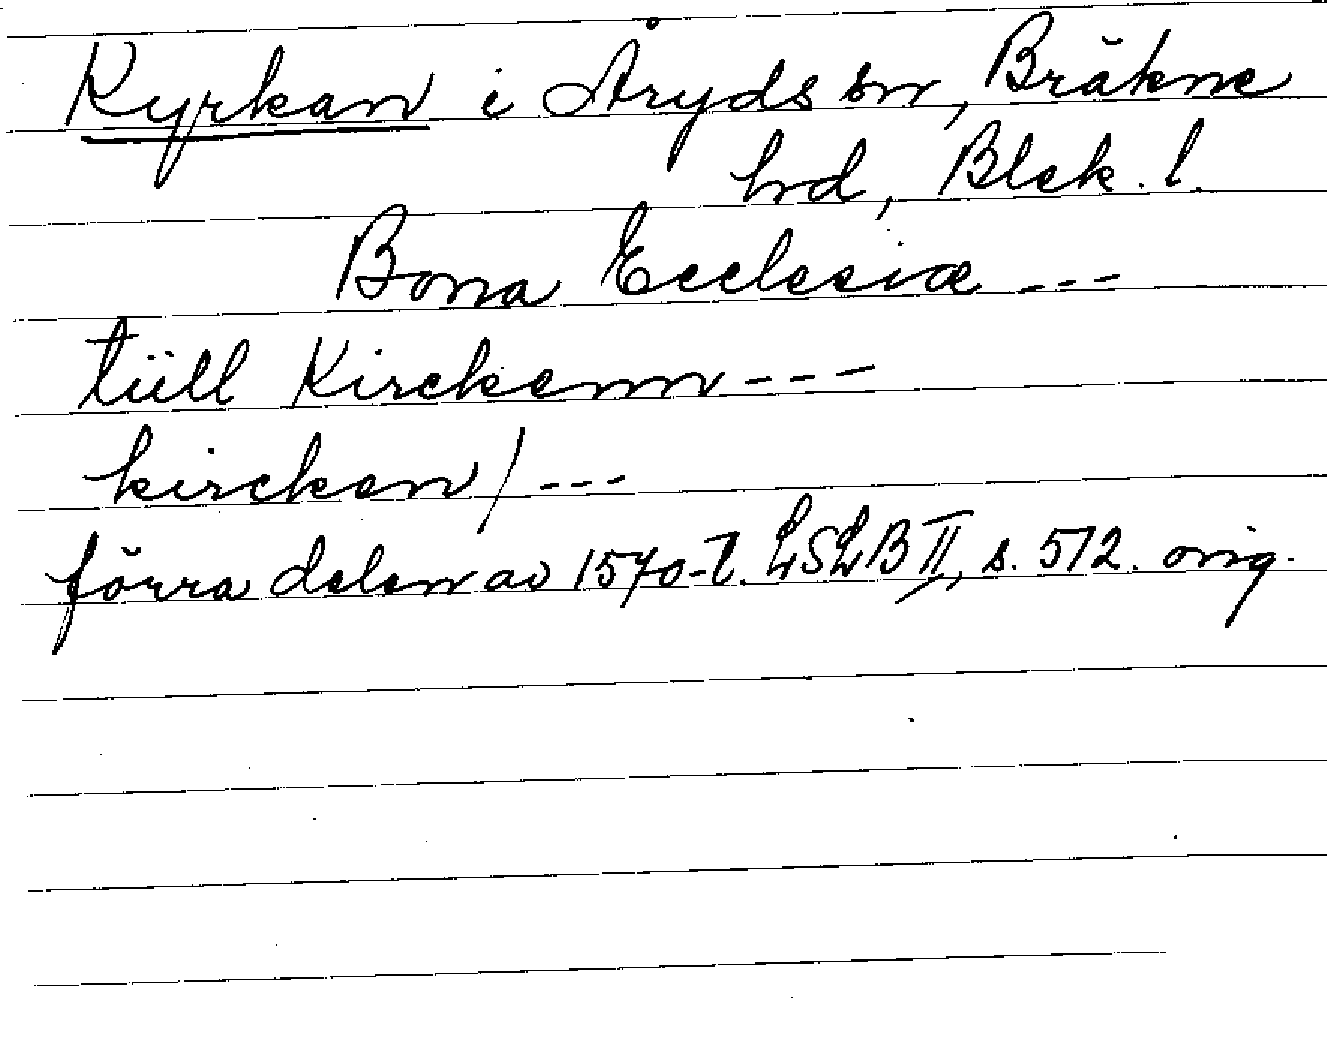 Kyrkan i Åryds sn, Bräkne
hd, Blek. l.
Bona Ecclesiæ ---
tüll Kirckenn ---
kircken/ ---
förra delen av 1570-t. LSLB II, s. 572. orig.